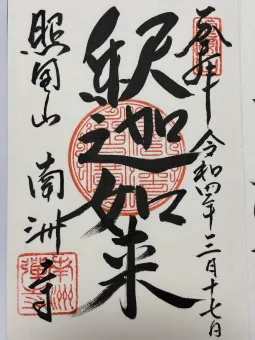 奉拝 令和四年三月十七日
釈迦如来
照国山 南洲寺